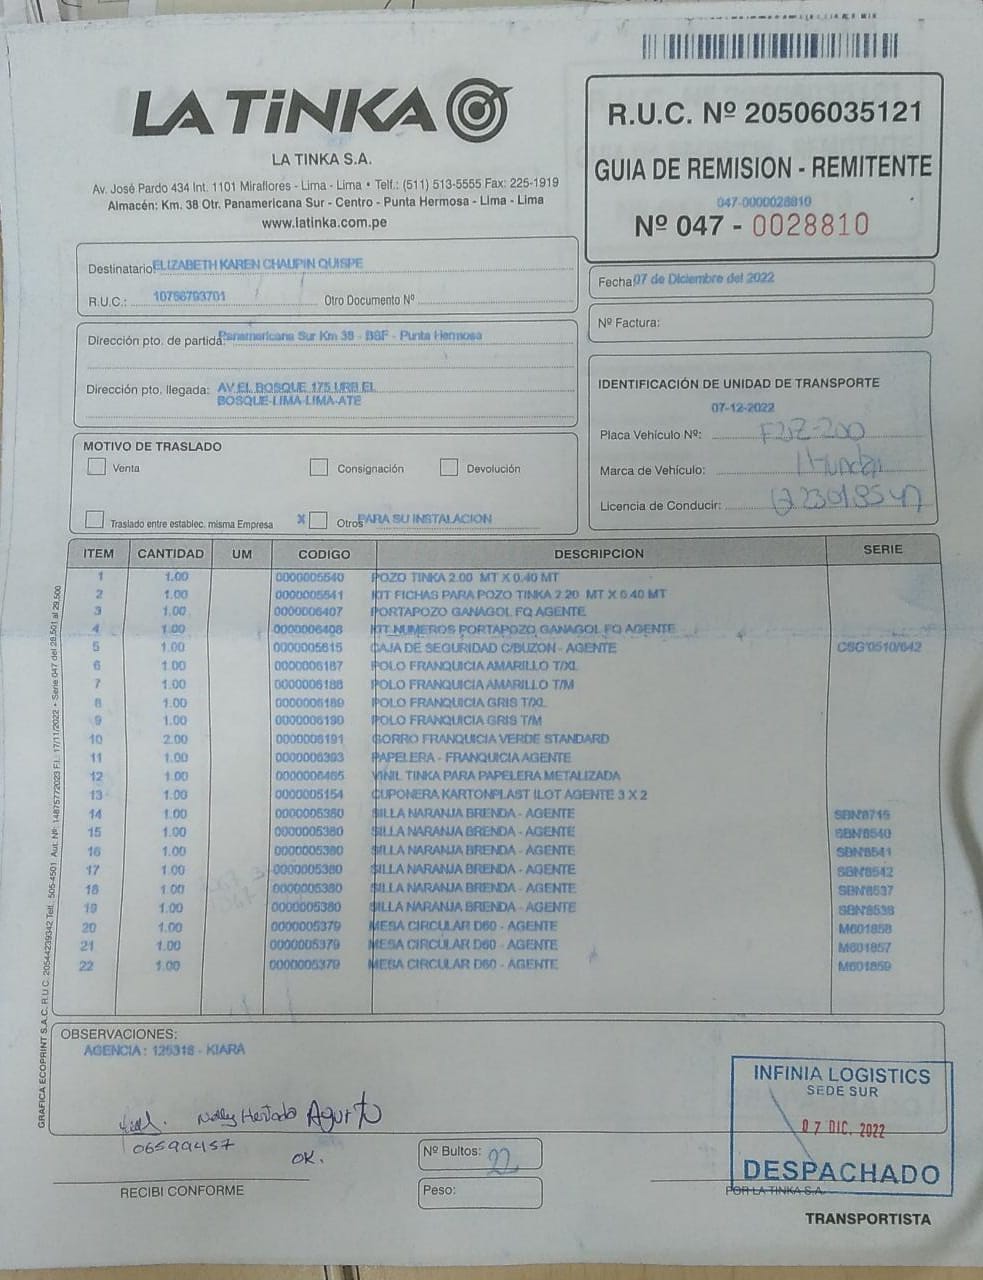 LA TiNKA
LA TINKA S.A.
Av. José Pardo 434 Int. 1101 Miraflores - Lima - Lima • Telf.: (511) 513-5555 Fax: 225-1919
Almacén: Km. 38 Otr. Panamericana Sur - Centro - Punta Hermosa - Lima - Lima
www.latinka.com.pe
R.U.C. Nº 20506035121
GUIA DE REMISION - REMITENTE
047-0000028810
Nº 047 - 0028810
Destinatario: ELIZABETH KAREN CHAUPIN QUISPE
R.U.C.: 10766793701 Otro Documento Nº
Fecha: 07 de Diciembre del 2022
Nº Factura:
Dirección pto. de partida: Panamericana Sur Km 38 - BSF - Punta Hermosa
Dirección pto. llegada: AV.EL BOSQUE 175 URB EL
BOSQUE-LIMA-LIMA-ATE
IDENTIFICACIÓN DE UNIDAD DE TRANSPORTE
07-12-2022
Placa Vehículo Nº:
Marca de Vehículo:
Licencia de Conducir:
MOTIVO DE TRASLADO
Venta Consignación Devolución
Traslado entre establec. misma Empresa X Otros PARA SU INSTALACION
ITEM CANTIDAD UM CODIGO DESCRIPCION SERIE
1 1.00 0000005540 POZO TINKA 2.00 MT X 0.40 MT
2 1.00 0000005541 KIT FICHAS PARA POZO TINKA 2.20 MT X 0.40 MT
3 1.00 0000006407 PORTAPOZO GANAGOL FQ AGENTE
4 1.00 0000006408 KIT NUMEROS PORTAPOZO GANAGOL FQ AGENTE
5 1.00 0000005615 CAJA DE SEGURIDAD C/BUZON - AGENTE CSG'0510/642
6 1.00 0000006187 POLO FRANQUICIA AMARILLO T/XL
7 1.00 0000006188 POLO FRANQUICIA AMARILLO T/M
8 1.00 0000006189 POLO FRANQUICIA GRIS T/XL
9 1.00 0000006190 POLO FRANQUICIA GRIS T/M
10 2.00 0000006191 GORRO FRANQUICIA VERDE STANDARD
11 1.00 0000006393 PAPELERA - FRANQUICIA AGENTE
12 1.00 0000006465 VINIL TINKA PARA PAPELERA METALIZADA
13 1.00 0000005154 CUPONERA KARTONPLAST ILOT AGENTE 3 X 2
14 1.00 0000005380 SILLA NARANJA BRENDA - AGENTE SBN'8715
15 1.00 0000005380 SILLA NARANJA BRENDA - AGENTE SBN'8540
16 1.00 0000005380 SILLA NARANJA BRENDA - AGENTE SBN'8541
17 1.00 0000005380 SILLA NARANJA BRENDA - AGENTE SBN'8542
18 1.00 0000005380 SILLA NARANJA BRENDA - AGENTE SBN'8537
19 1.00 0000005380 SILLA NARANJA BRENDA - AGENTE SBN'8538
20 1.00 0000005379 MESA CIRCULAR D60 - AGENTE M601858
21 1.00 0000005379 MESA CIRCULAR D60 - AGENTE M601857
22 1.00 0000005379 MESA CIRCULAR D60 - AGENTE M601859
GRAFICA ECOPRINT S.A.C. R.U.C. 20544239342 Telf. 505-4501 Aut. Nº: 14875772023 F.I.: 17/11/2022 • Serie 047 del 28,501 al 29,500
OBSERVACIONES:
AGENCIA: 125318 - KIARA
Nelly Hurtado Agurto
06599457
OK.
RECIBI CONFORME
Nº Bultos: 22
Peso:
INFINIA LOGISTICS
SEDE SUR
07 DIC. 2022
DESPACHADO
POR LA TINKA S.A.
TRANSPORTISTA